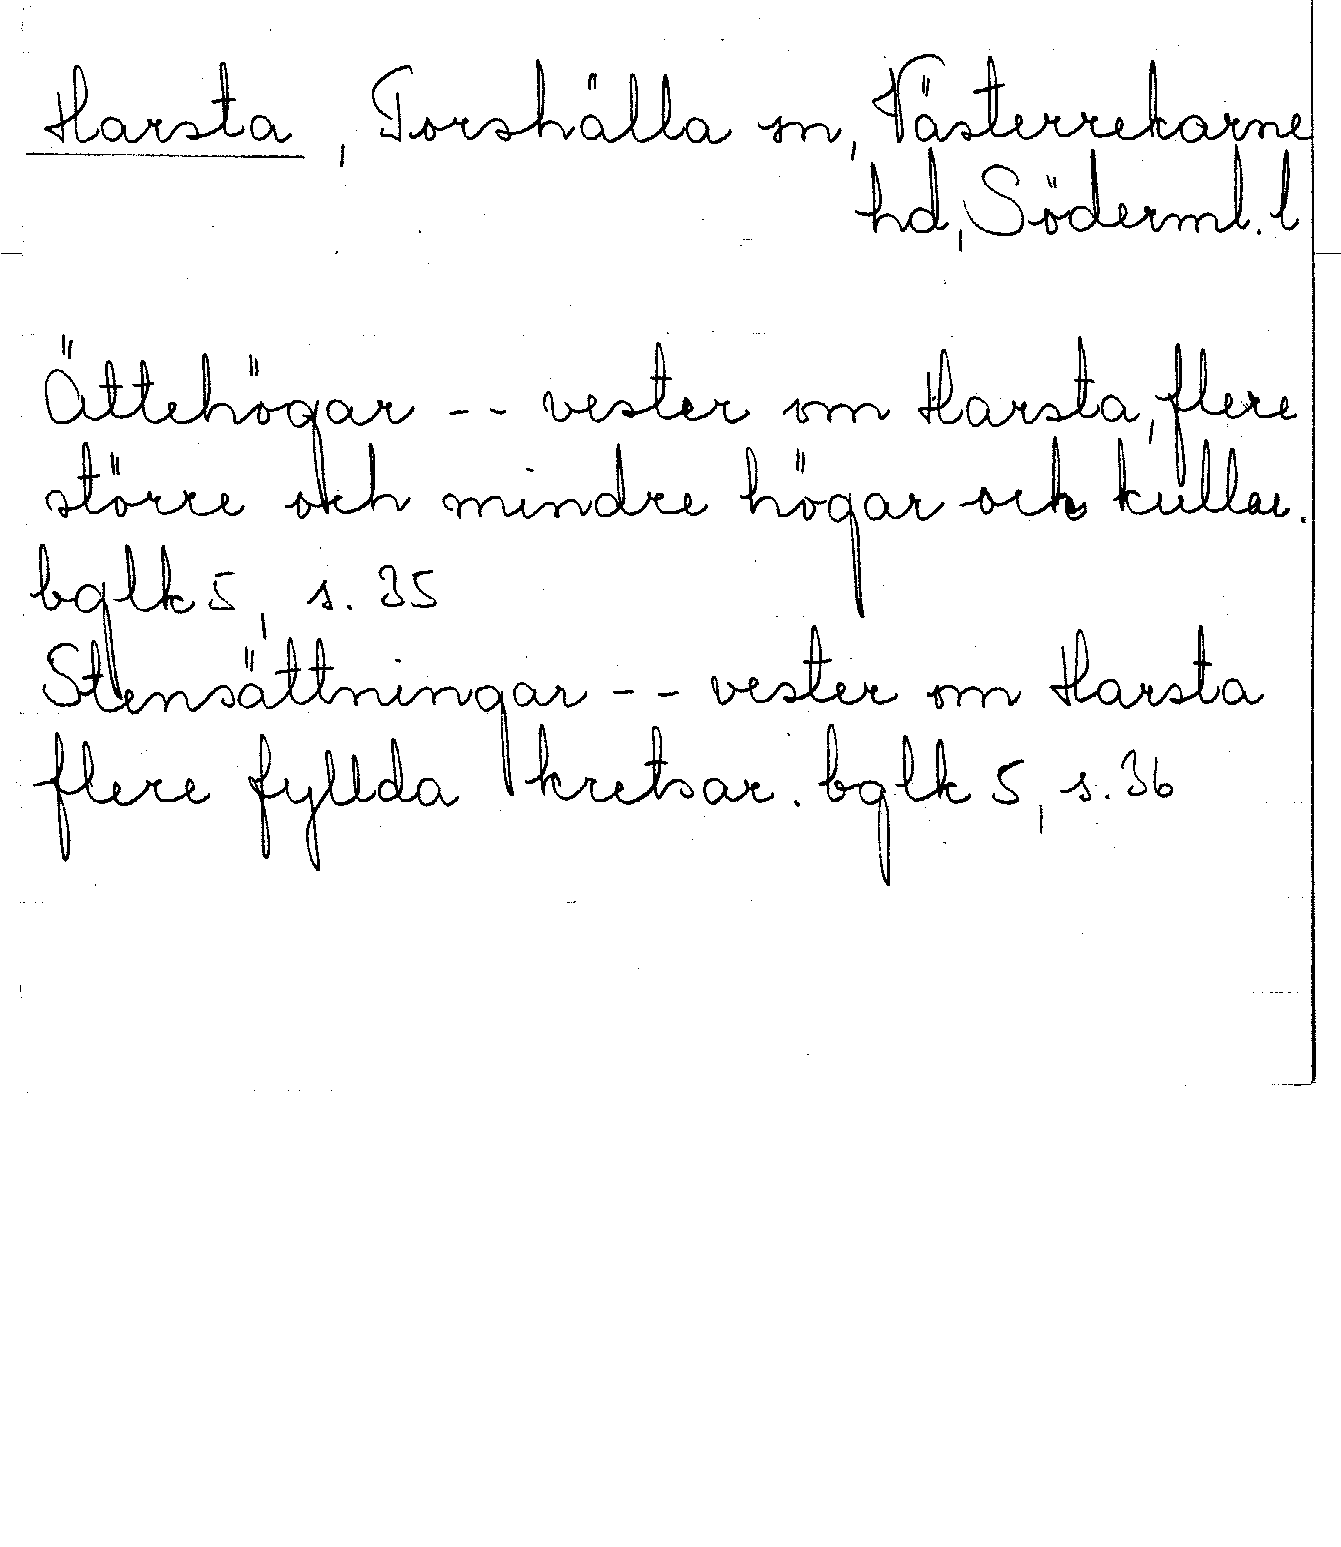 Harsta, Torshälla sn, Västerrekarne
hd, Söderml. l
Ättehögar -- vester om Harsta, flere
större och mindre högar och kullar.
bglk 5, s. 35
Stensättningar -- vester om Harsta
flere fyllda kretsar. bglk 5, s. 36